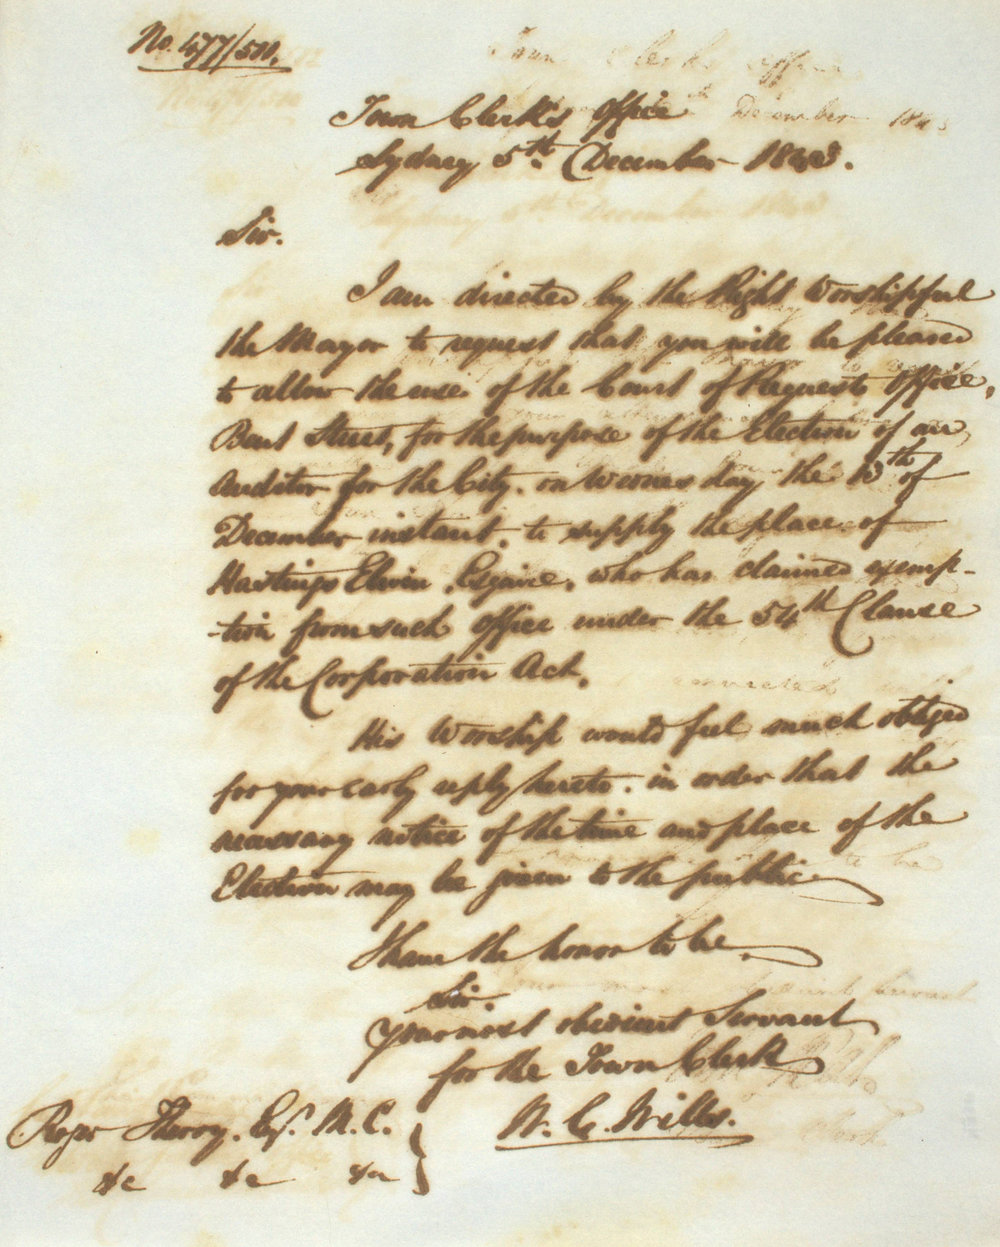 No. 477/510.
Town Clerk's Office
Sydney 5th. December 1843.
Sir.
I am directed by the Right Worshipful
the Mayor to request that you will be pleased
to allow the use of the Court of Requests Office,
Bent Street, for the purpose of the Election of an
Auditor for the City. on Wednesday the 13th of
December instant, to supply the place of
Hastings Elwin, Esquire, who has claimed exemp-
-tion from such office under the 54th Clause
of the Corporation Act.
His Worship would feel much obliged
for your early reply hereto. in order that the
necessary notice of the time and place of the
Election may be given to the public.
I have the honor to be,
Sir.
Your most obedient Servant
for the Town Clerk
W. C. Wills.
Roger Therry. Esqr. M.C.
&c &c &c